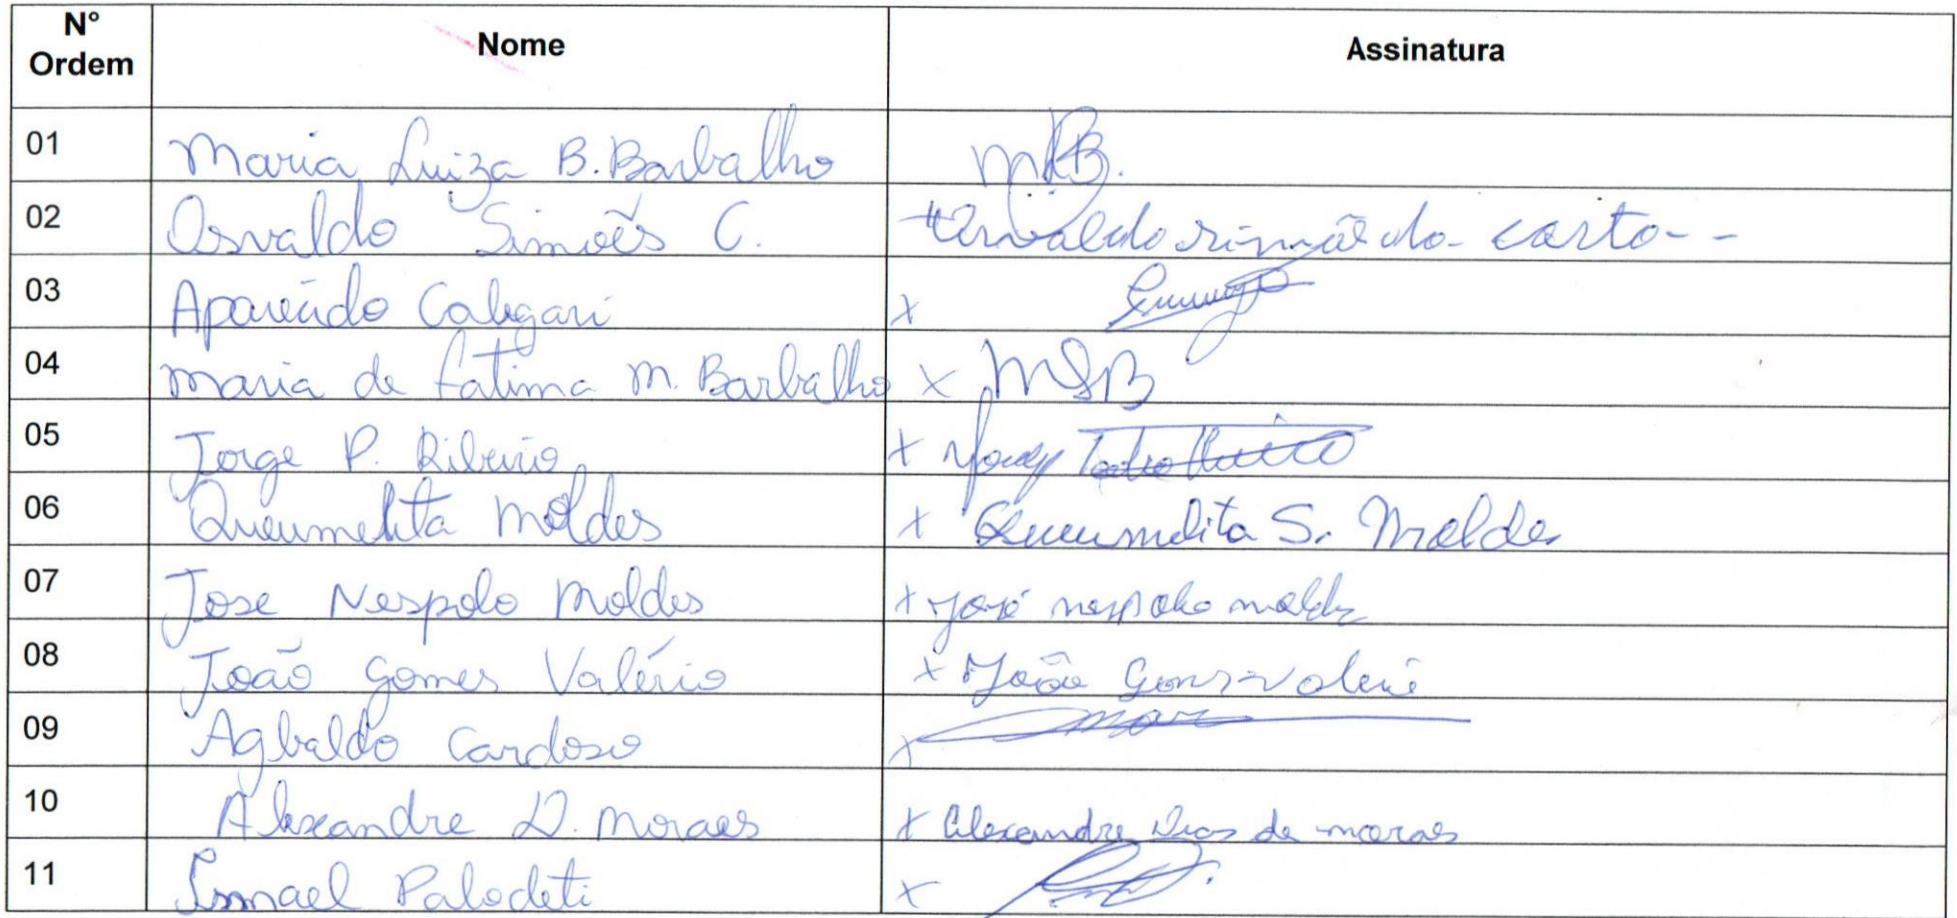 N° Ordem Nome Assinatura
01 Maria Luiza B. Barbalho
02 Osvaldo Simões C.
03 Aparecido Calegari X
04 Maria de Fatima M. Barbalho X
05 Jorge P. Ribeiro X
06 Queumelita Moldes X Queumelita S. Molde
07 Jose Nespolo Moldes X José nespolo
08 João Gomes Valério X João
09 Agbaldo Cardoso X
10 Alexandre D. Moraes X Alexandre Dias de moraes
11 Ismael Palodeti X